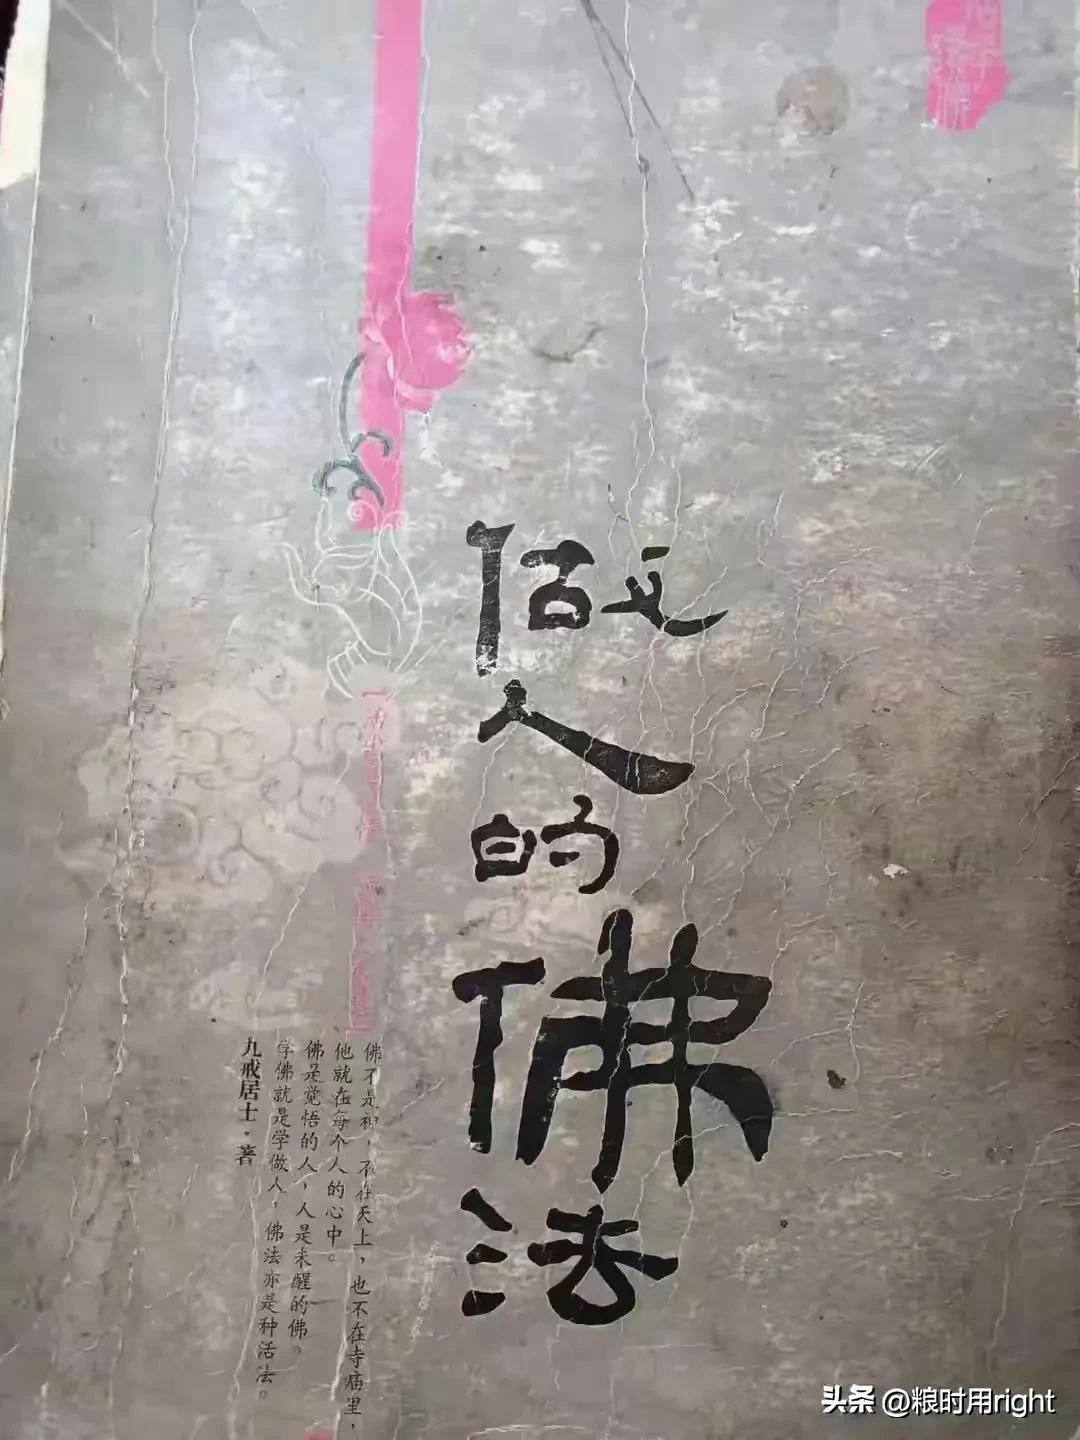 做人的佛法
佛不是神，不在天上，也不在寺庙里，
他就在每个人的心中。
佛是觉悟的人，人是未醒的佛。
学佛就是学做人，佛法亦是种活法。
九戒居士·著
头条 @粮时用right